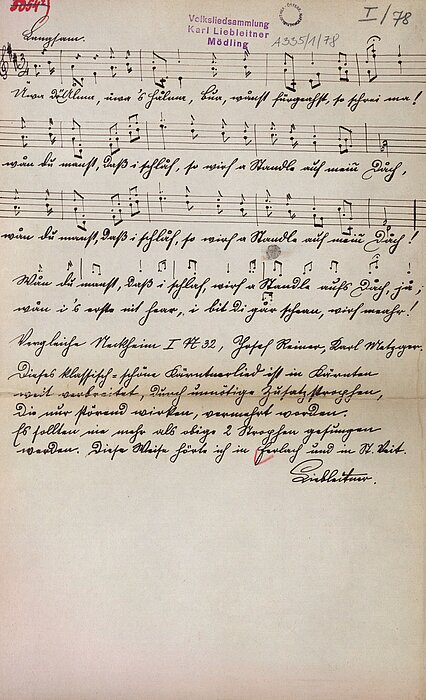 3054
I/78
Volksliedsammlung
Karl Liebleitner
Mödling
A335/1/78
Langsam.
Üwa d' Ålma, üwa 's Hålma, Bua, wånst fürgehst, so schrei ma!
wån du manst, daß i schlåf, so wirf a Standle auf mein Dåch,
wån du manst, daß i schlåf, so wirf a Standle auf mein Dåch!
Wån du manst, daß i schlåf, wirf a Standle aufs Dåch, ja,
wån i 's erste nit hear, i bit di går schean, wirf meahr!
Vergleiche Neckheim I № 32, Josef Reiner, Karl Metzger.
Dieses klassisch-schöne Kärntnerlied ist in Kärnten
weit verbreitet, durch unnötige Zusatzstrophen,
die nur störend wirken, vermehrt worden.
Es sollten nie mehr als obige 2 Strophen gesungen
werden. Diese Weise hörte ich in Ferlach und in St. Veit.
Liebleitner.